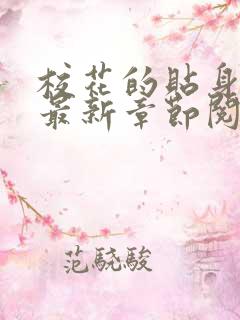 校花的貼身
最新章節閱
范驍駿